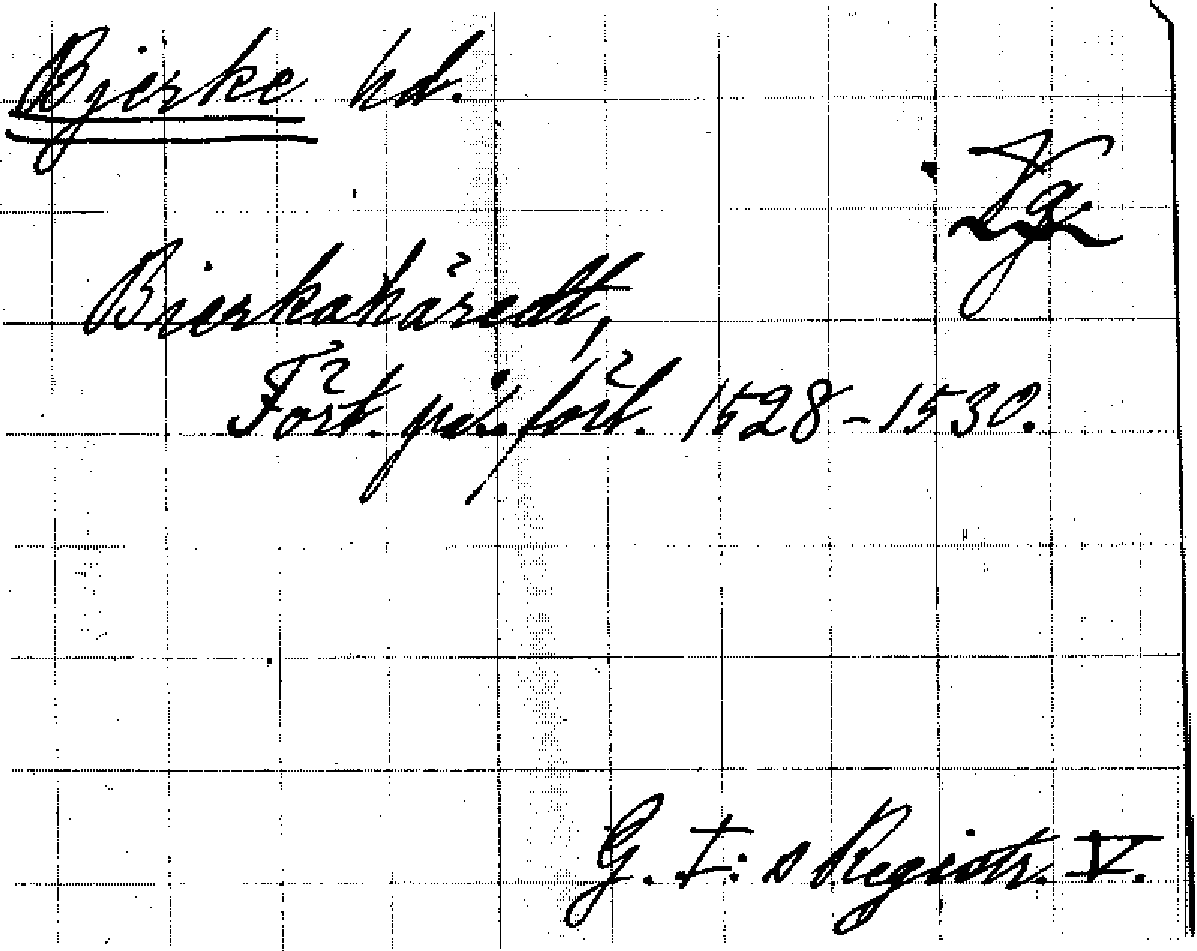 Bjerke hd.
Vg
Bierkahäredt,
Fört. på förl. 1528-1530.
G. I:s Registr. V.